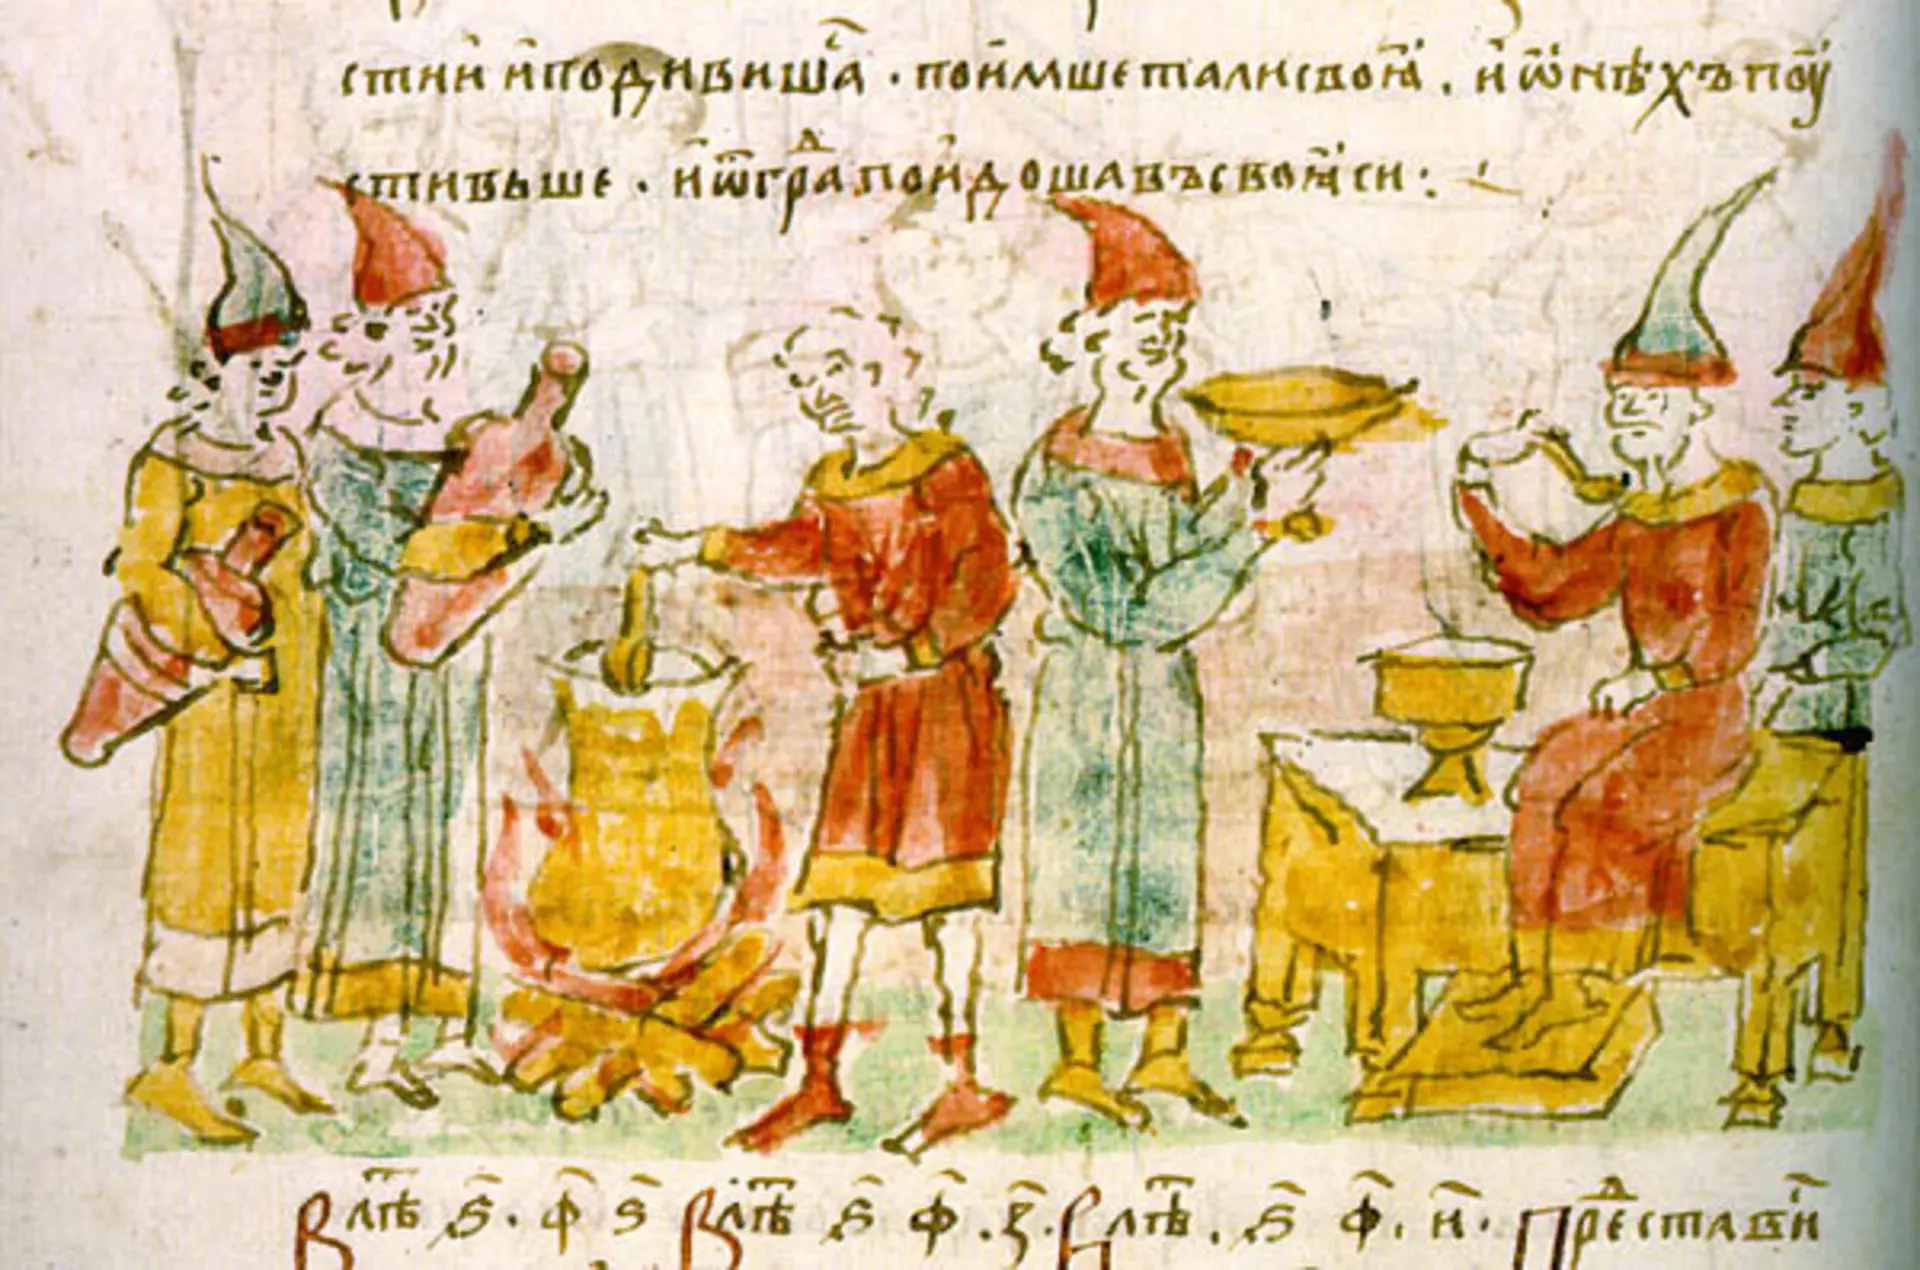 стии и подивишаⷭ . поимше тали своꙗ . и ѡнѣхъ поу
стивьше . и ѿ граⷣ поидоша въ своꙗси :
В лⷮѣ ҂ѕ҃ . ф҃ ѕ҃ В лⷮѣ ҂ѕ҃ ф҃ . з҃ . В лⷮѣ . ҂ѕ҃ ф҃ . и҃ . Преⷣставиⷭ